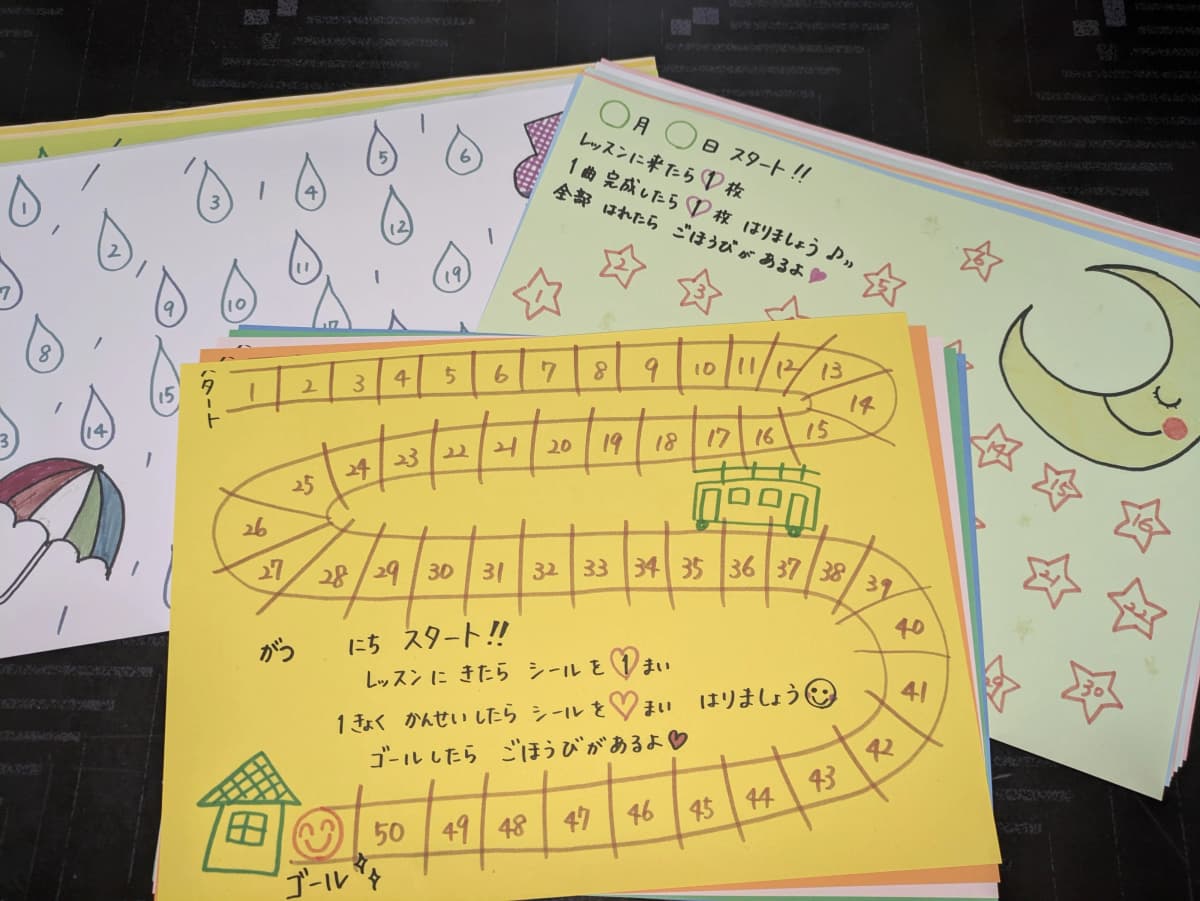 1 2 3 4 5 6
7 8 9 10 11 12
14 15 19
○月 ○日 スタート!!
レッスンに来たら 1 枚
1曲 完成したら 1 枚 はりましょう♪
全部 はれたら ごほうびが あるよ♥
1 2 3 5 6
15 16
21 22
29 30
スタート
1 2 3 4 5 6 7 8 9 10 11 12 13
14
15 16 17 18 19 20 21 22 23 24 25
26
27 28 29 30 31 32 33 34 35 36 37 38 39
40
41
がつ にち スタート!!
レッスンに きたら シールを 1 まい
1きょく かんせいしたら シールを ♡ まい はりましょう
ゴールしたら ごほうびがあるよ♥
42
43 44 45 46 47 48 49 50
ゴール